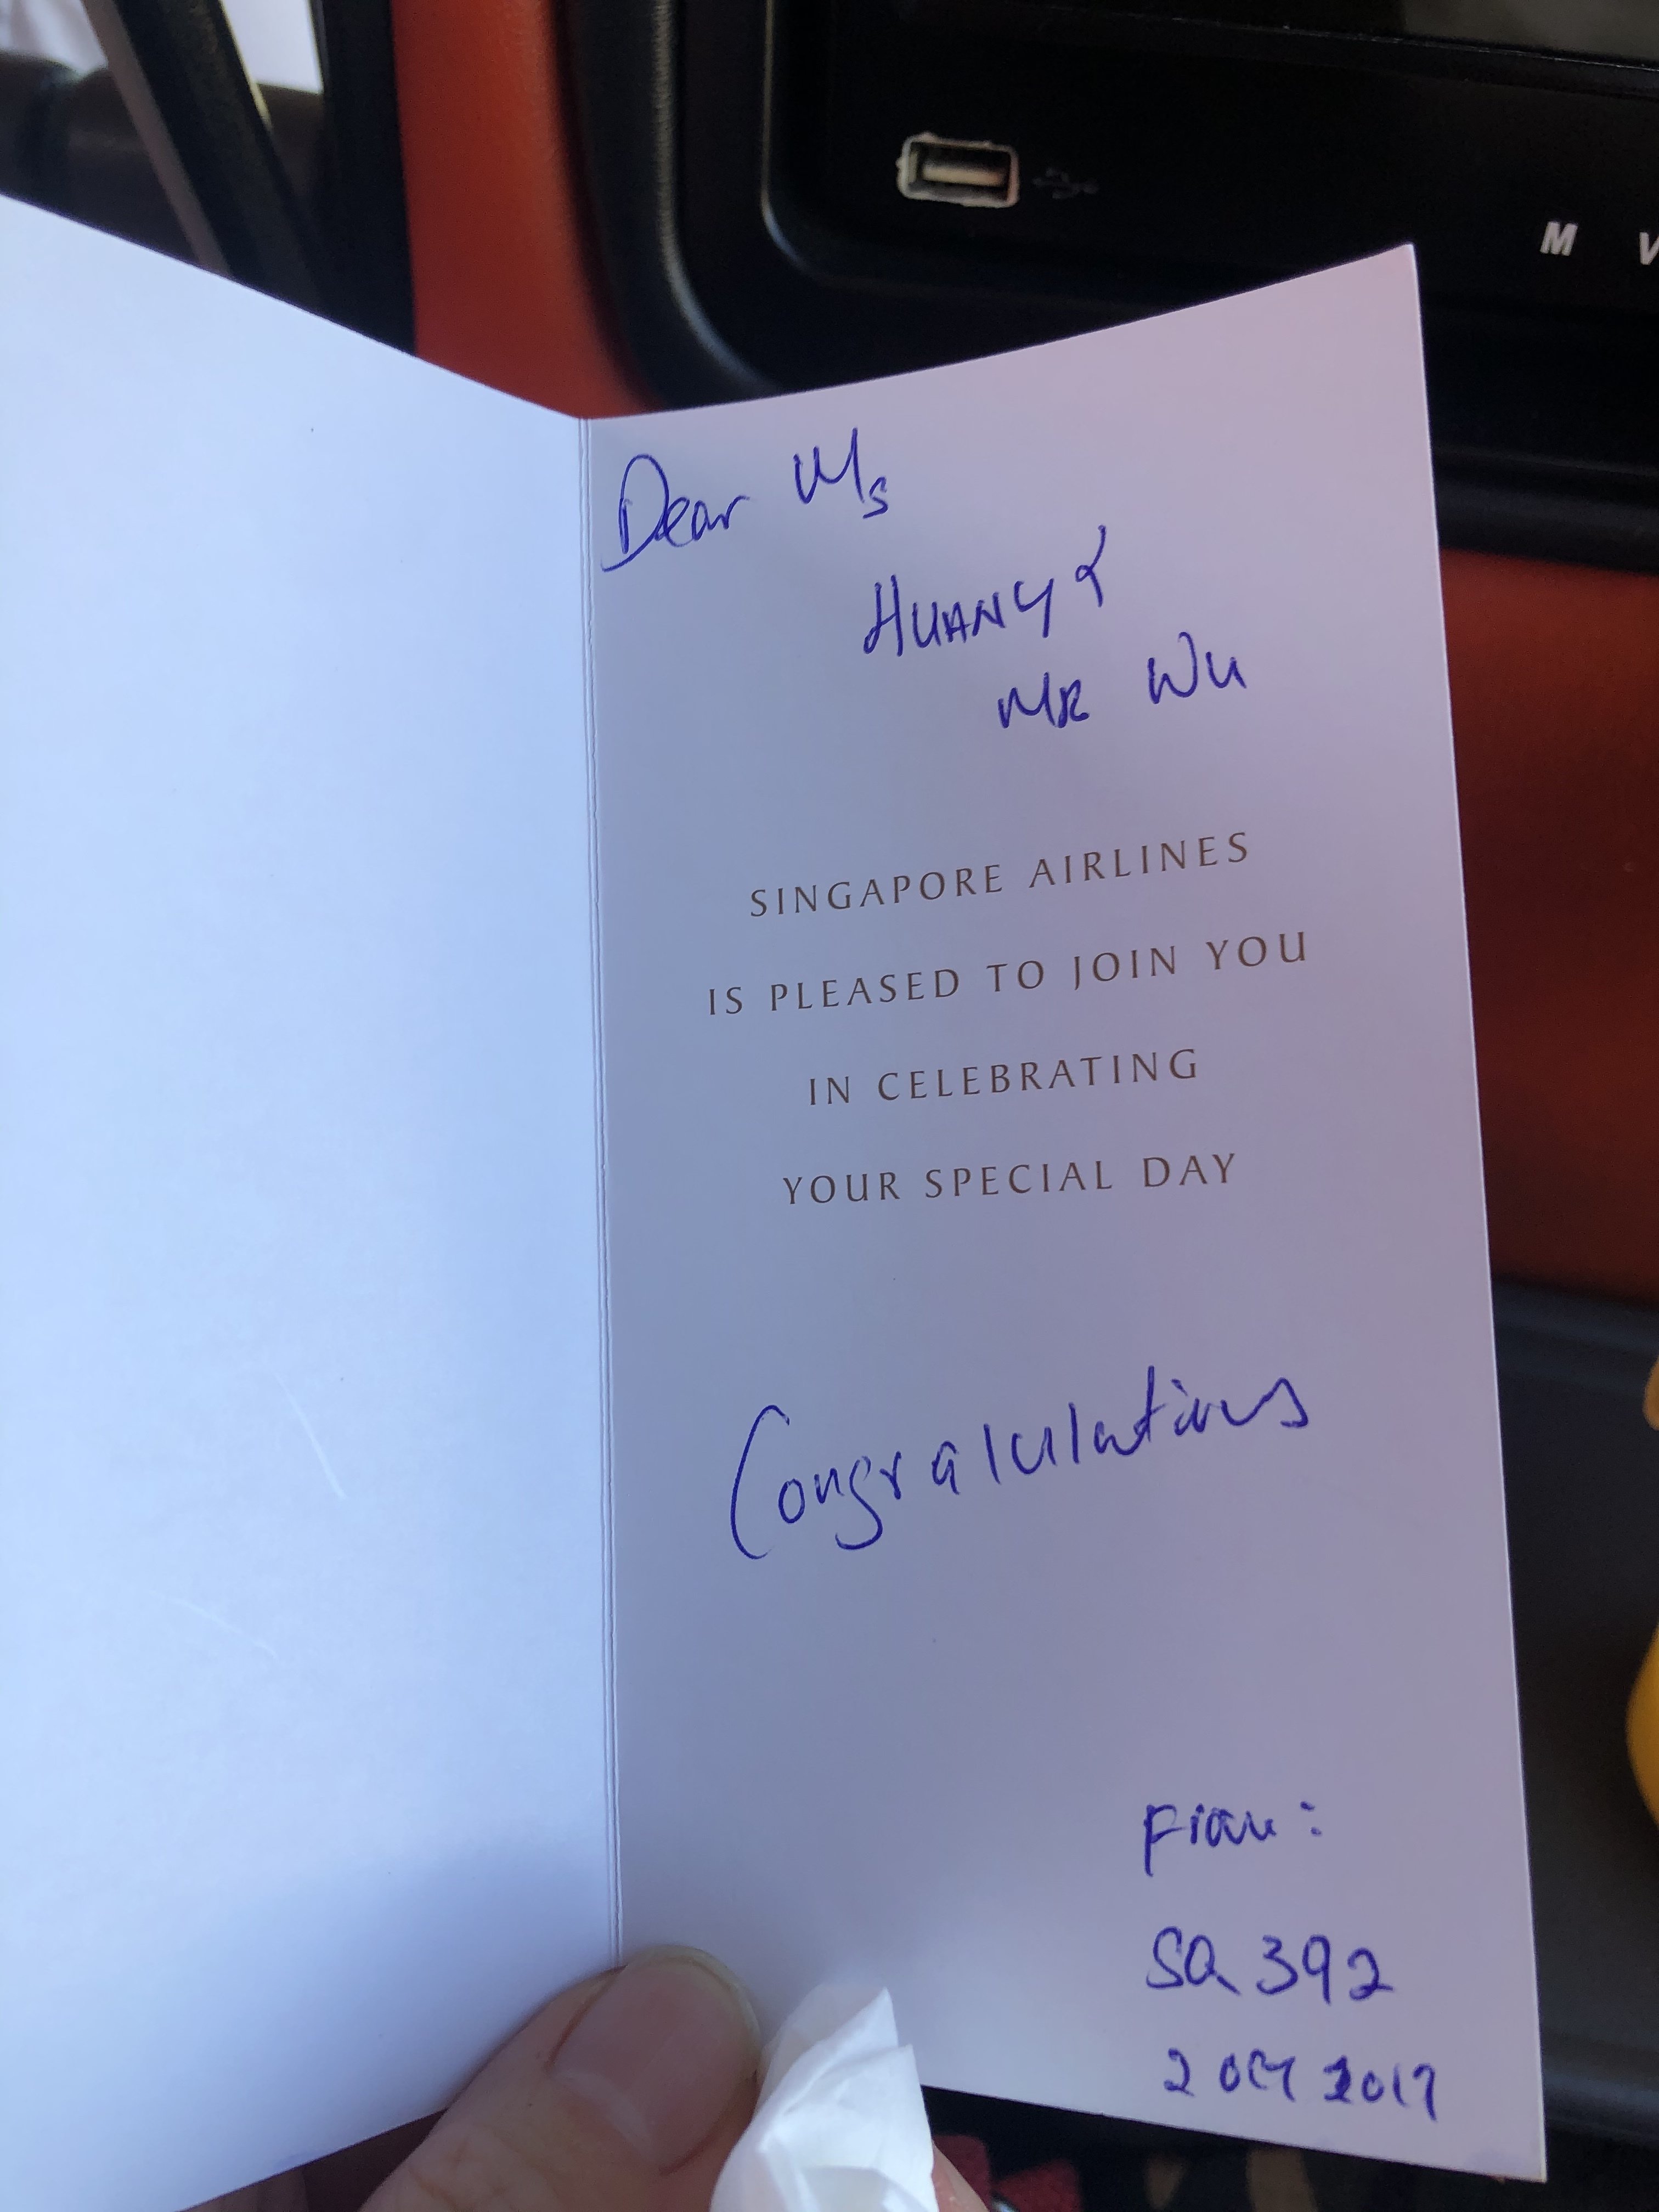 M V
Dear Ms
HUANG &
MR WU
SINGAPORE AIRLINES
IS PLEASED TO JOIN YOU
IN CELEBRATING
YOUR SPECIAL DAY
Congratulations
From :
SQ 392
2 OCT 2017